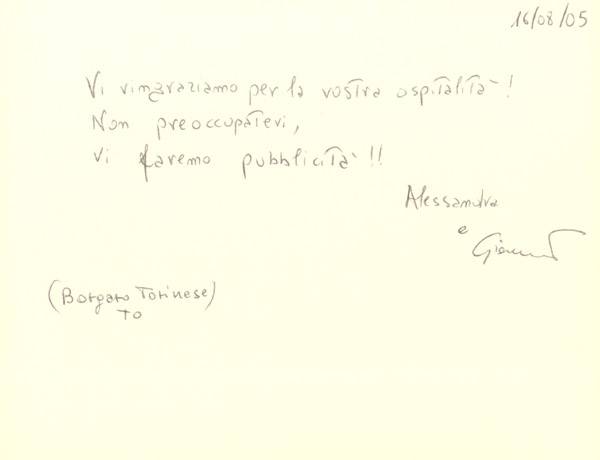 16/08/05
Vi ringraziamo per la vostra ospitalità!
Non preoccupatevi,
vi faremo pubblicità!!
Alessandra
e
(Borgaro Torinese)
TO